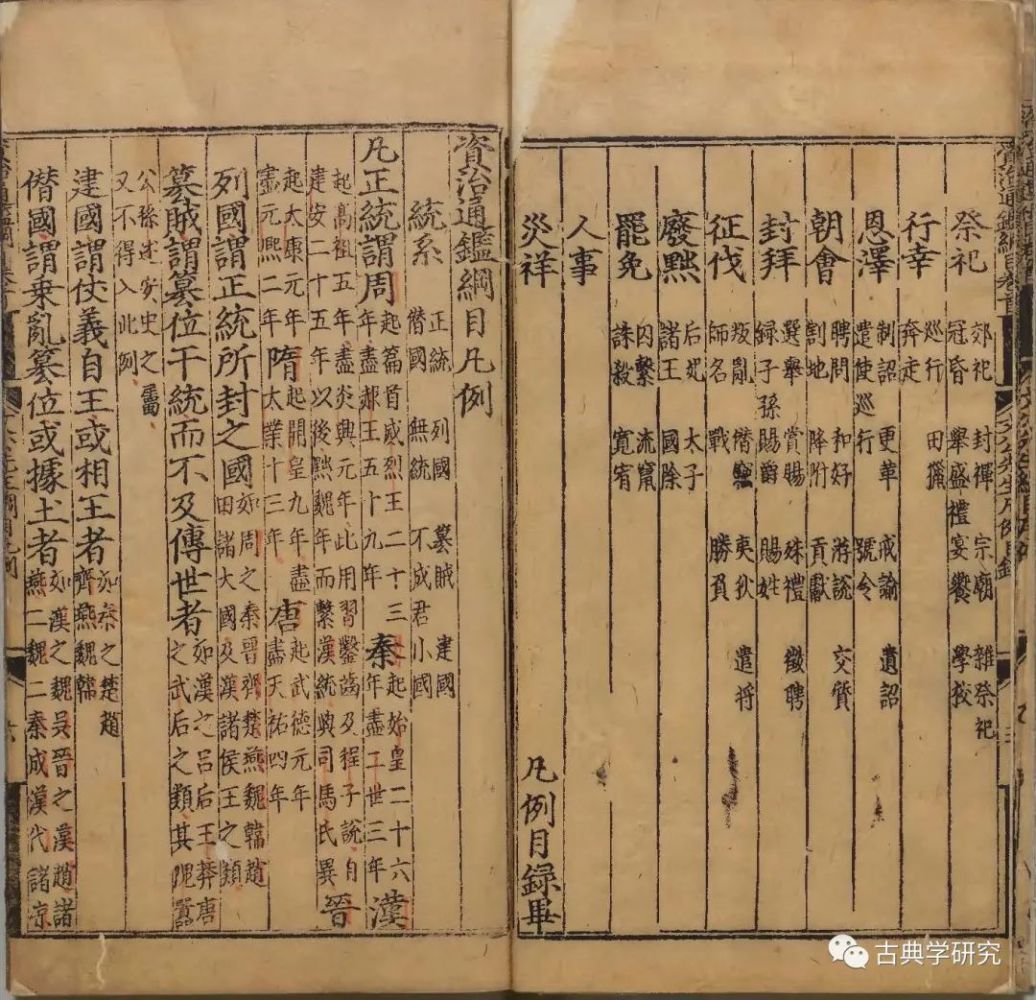 資治通鑑綱目卷首
祭祀 郊祀 封禪 宗廟 雜祭祀
冠昏 舉盛禮 宴饗 學校
行幸 巡行 田獵
奔走
恩澤 制詔 更革 戒諭 遺詔
遣使巡行 號令
朝會 聘問 和好 游說 交質
割地 降附 貢獻
封拜 選舉 賞賜 殊禮 徵聘
録子孫 賜爵 賜姓
征伐 叛亂 僭竊 夷狄 遣將
師名 戰 勝負
廢黜 后妃 太子
諸王 國除
罷免 囚繫 流竄
誅殺 寬宥
人事
災祥 凡例目録畢
資治通鑑綱目凡例
統系 正統 列國 簒賊 建國
僭國 無統 不成君小國
凡正統謂周起篇首威烈王二十三年盡赧王五十九年秦起始皇二十六年盡二世三年漢
起高祖五年盡炎興元年此用習鑿齒及程子說自建安二十五年以後黜魏年而繫漢統與司馬氏異晉
起太康元年盡元熙二年隋起開皇九年盡大業十三年唐起武德元年盡天祐四年
列國謂正統所封之國如周之秦晉齊楚燕魏韓趙田諸大國及漢諸侯王之類
簒賊謂簒位干統而不及傳世者如漢之呂后王莽唐之武后之類其隗囂
公孫述安史之屬又不得入此例
建國謂仗義自王或相王者如秦之楚趙齊燕魏韓
僭國謂乗亂簒位或據土者如漢之魏吳晉之漢趙諸燕二魏二秦成漢代諸凉
古典学研究